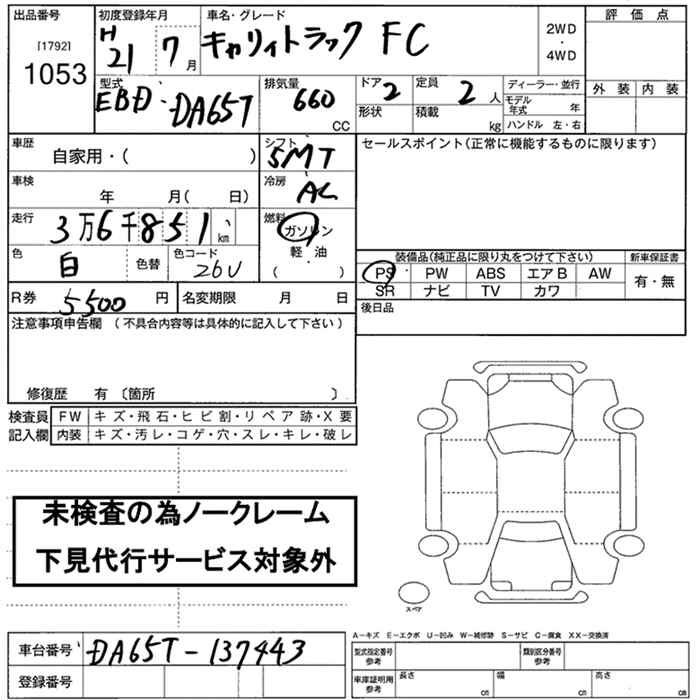 出品番号 初度登録年月 車名・グレード 評価点
[1792] 1053 H21 7月 キャリィトラック FC 2WD・4WD
外装 内装
型式 排気量 ドア 定員 ディーラー・並行
EBD-DA65T 660 CC 2 2人 モデル年式 年
形状 積載 kg ハンドル 左・右
車歴 シフト セールスポイント(正常に機能するものに限ります)
自家用・( ) 5MT
車検 冷房
年 月( 日) AC
走行 燃料
3万6千851km ガソリン
色 色替 色コード 軽・油
白 26U ( )
装備品(純正品に限り丸をつけて下さい) 新車保証書
PS PW ABS エアB AW 有・無
SR ナビ TV カワ
R券 5500円 名変期限 月 日
後日品
注意事項申告欄 (不具合内容等は具体的に記入して下さい)
修復歴 有 〔箇所 〕
検査員 FW キズ・飛石・ヒビ割・リペア跡・X要
記入欄 内装 キズ・汚レ・コゲ・穴・スレ・キレ・破レ
未検査の為ノークレーム
下見代行サービス対象外
スペア
A－キズ E－エクボ U－凹み W－補修跡 S－サビ C－腐食 XX－交換済
車台番号 DA65T-137443
登録番号
型式指定番号 参考 類別区分番号 参考
車庫証明用 参考 長さ cm 幅 cm 高さ cm